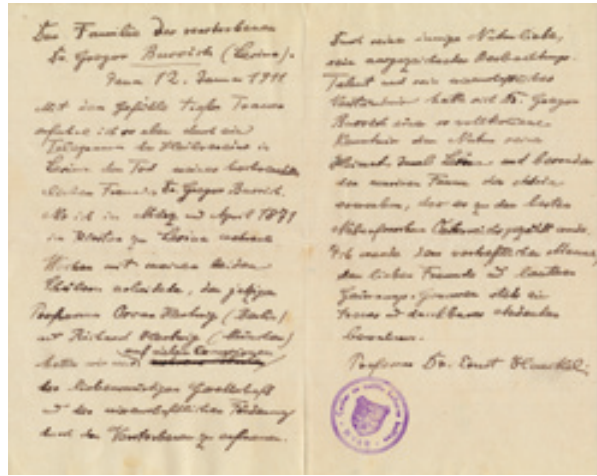 Der Familie des verstorbenen
Dr. Gregor Bucchich (Lesina).
Jena 12. Januar 1911
Mit dem Gefühle tiefer Trauer
erfuhr ich so eben durch ein
Telegramm des
Lesina den Tod meines
lieben Freundes Dr. Gregor Bucchich.
Als ich im März und April 1871
im Kloster zu Lesina mehrere
Wochen mit meinen beiden
Schülern arbeitete, den jetzigen
Professoren Oscar Hertwig (Berlin)
und Richard Hertwig (München)
hatten wir uns auf vielen Excursionen
der liebenswürdigen Gesellschaft
und der wissenschaftlichen Förderung
durch den Verstorbenen zu erfreuen.
Durch seine innige Naturliebe,
sein ausgezeichnetes Beobachtungs-
Talent und sein wissenschaftliches
Verständnis hatte sich Dr. Gregor
Bucchich eine so vollkommene
Kenntnis der Natur seiner
Heimats-Insel Lesina und besonders
der marinen Fauna der Adria
erworben, dass er zu den besten
Naturforschern Österreichs gezählt wurde.
Ich werde dem vortrefflichen Manne,
dem lieben Freunde und
stets ein
treues und dankbares Andenken
bewahren.
Professor Dr. Ernst Haeckel.